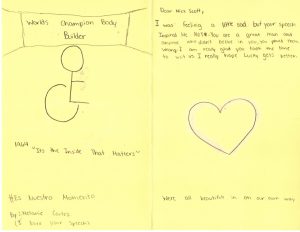 Worlds Champion Body
Builder
1969 "Its the Inside That Matters"
#Es Nuestro Momento
By: Melanie Cortes
(I love your speech)
Dear Nick Scott,
I was feeling a little sad, but your speech
inspired me ALOT. You are a great man and
anyone who didn't believe in you, you proved them
wrong. I am really glad you took the time
to visit us. I really hope Lucky gets better.
We're all beautiful in our own way